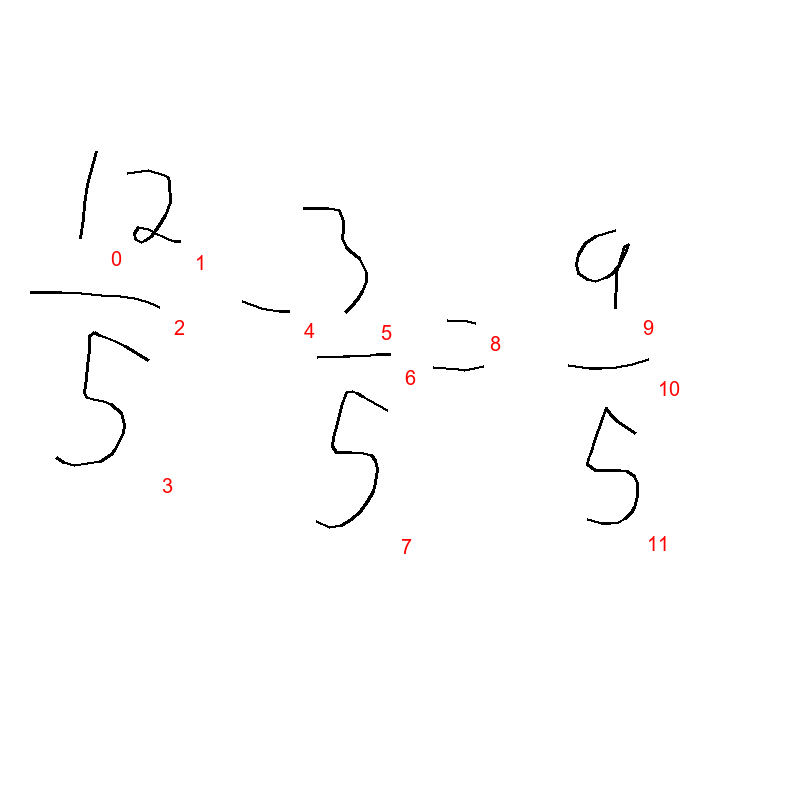 12/5 - 3/5 = 9/5
0 1 2 3 4 5 6 7 8 9 10 11